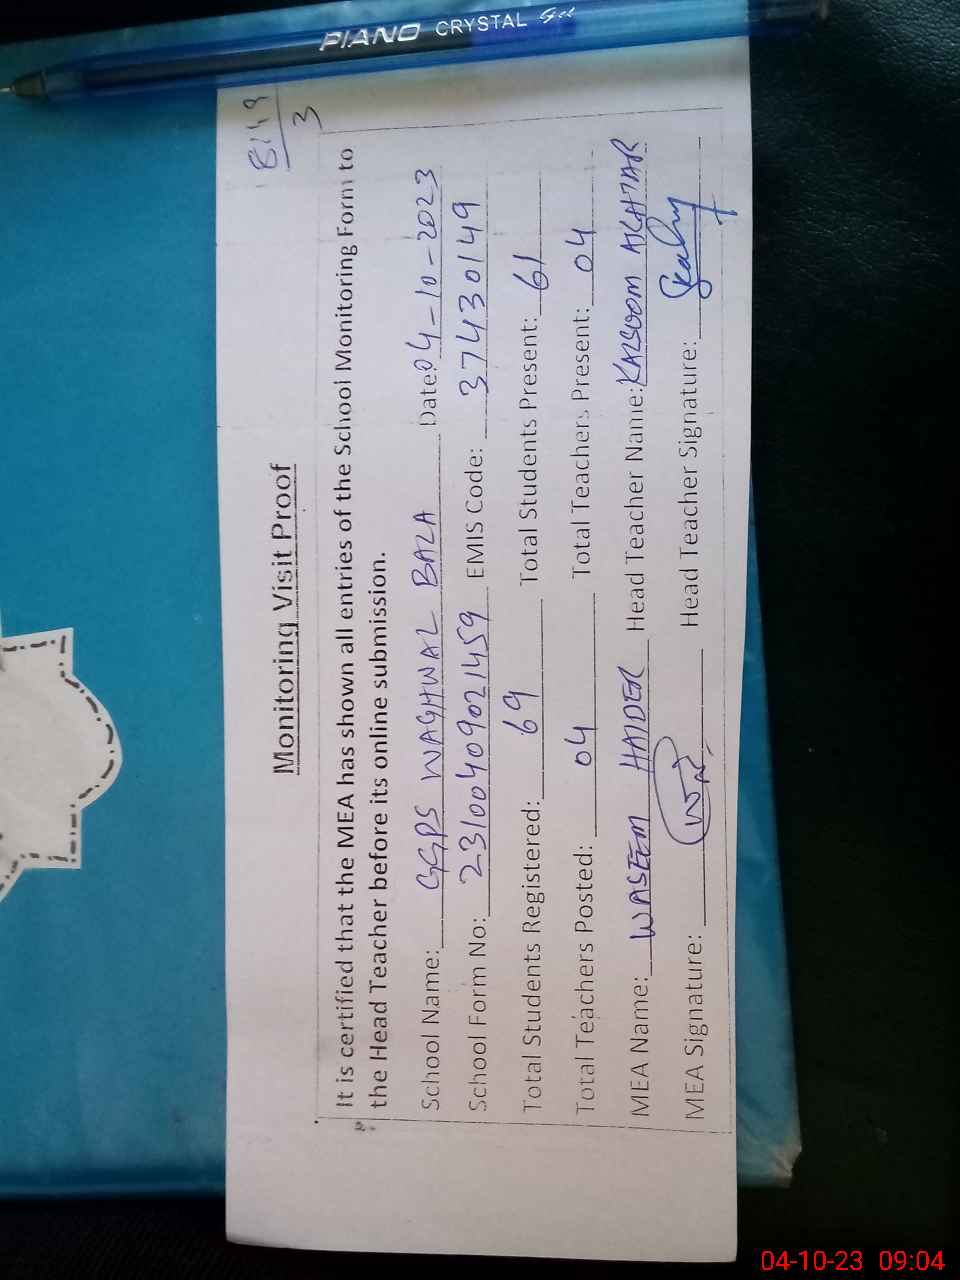 PIANO CRYSTAL Gel
8149
3
Monitoring Visit Proof
It is certified that the MEA has shown all entries of the School Monitoring Form to
the Head Teacher before its online submission.
School Name: GGPS WAGHWAL BALA Date: 04-10-2023
School Form No: 23100409021459 EMIS Code: 37430149
Total Students Registered: 69 Total Students Present: 61
Total Teachers Posted: 04 Total Teachers Present: 04
MEA Name: WASEEM HAIDER Head Teacher Name: KALSOOM AKHTAR
MEA Signature: Head Teacher Signature:
04-10-23 09:04